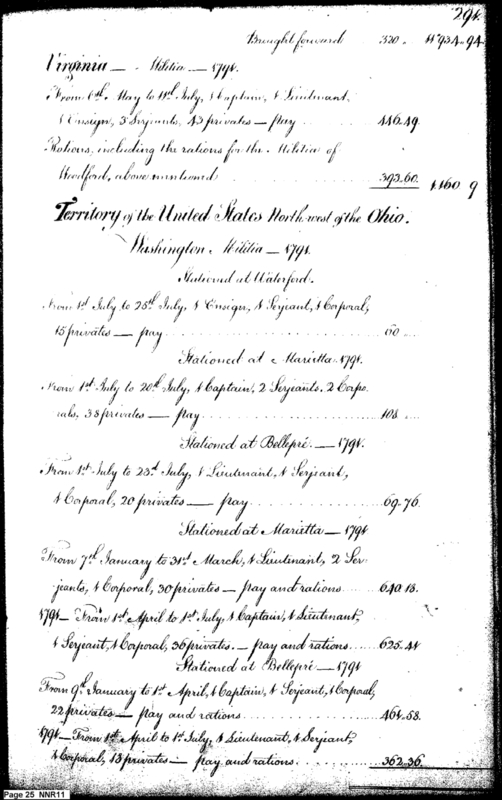 291.
Brought forward 320. 11934.94
Virginia — Militia — 1791.
From 6th May to 11th July, 1 Captain, 1 Lieutenant,
1 Ensign, 3 Serjeants, 43 privates — pay 446.49
Rations, including the rations for the Militia of
Woodford, above mentioned 393.60. 1160 9
Territory of the United States North west of the Ohio.
Washington Militia — 1791.
Stationed at Waterford.
From 1st July to 25th July, 1 Ensign, 1 Serjeant, 1 Corporal,
15 privates — pay 60
Stationed at Marietta 1791.
From 1st July to 20th July, 1 Captain, 2 Serjeants, 2 Corpo-
rals, 38 privates — pay 108
Stationed at Bellepré — 1791.
From 1st July to 23d July, 1 Lieutenant, 1 Serjeant,
1 Corporal, 20 privates — pay 69.76
Stationed at Marietta — 1791
From 7th January to 31st March, 1 Lieutenant, 2 Ser-
jeants, 1 Corporal, 30 privates — pay and rations 640.18.
1791 — From 1st April to 1st July, 1 Captain, 1 Lieutenant,
1 Serjeant, 1 Corporal, 36 privates. — pay and rations 625.41
Stationed at Bellepré — 1791
From 9th January to 1st April, 1 Captain, 1 Serjeant, 1 Corporal,
22 privates — pay and rations 464.58.
1791 — From 1st April to 1st July, 1 Lieutenant, 1 Serjeant,
1 Corporal, 13 privates — pay and rations 362.36.
Page 25 NNR11